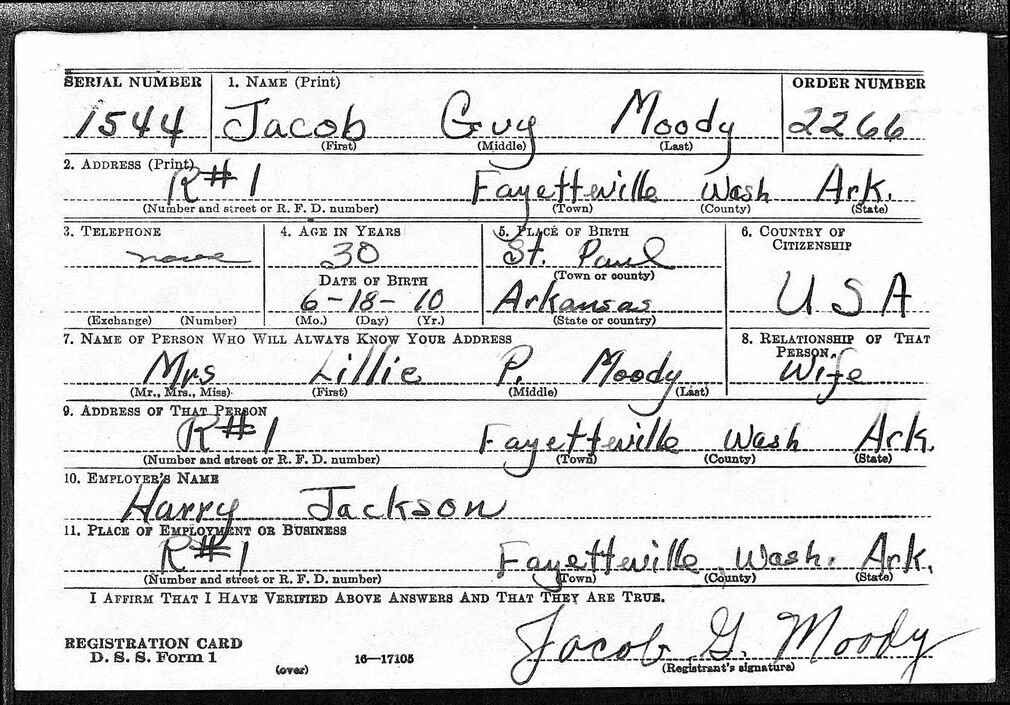 SERIAL NUMBER 1. NAME (Print) ORDER NUMBER
1544 Jacob Guy Moody 2266
(First) (Middle) (Last)
2. ADDRESS (Print)
R#1 Fayetteville Wash Ark.
(Number and street or R. F. D. number) (Town) (County) (State)
3. TELEPHONE 4. AGE IN YEARS 5. PLACE OF BIRTH 6. COUNTRY OF CITIZENSHIP
none 30 St. Paul
(Town or county)
DATE OF BIRTH
6-18-10 Arkansas USA
(Exchange) (Number) (Mo.) (Day) (Yr.) (State or country)
7. NAME OF PERSON WHO WILL ALWAYS KNOW YOUR ADDRESS 8. RELATIONSHIP OF THAT PERSON
Mrs Lillie P. Moody Wife
(Mr., Mrs., Miss) (First) (Middle) (Last)
9. ADDRESS OF THAT PERSON
R#1 Fayetteville Wash Ark.
(Number and street or R. F. D. number) (Town) (County) (State)
10. EMPLOYER'S NAME
Harry Jackson
11. PLACE OF EMPLOYMENT OR BUSINESS
R#1 Fayetteville Wash. Ark.
(Number and street or R. F. D. number) (Town) (County) (State)
I AFFIRM THAT I HAVE VERIFIED ABOVE ANSWERS AND THAT THEY ARE TRUE.
Jacob G. Moody
REGISTRATION CARD
D. S. S. Form 1
(over) 16—17105 (Registrant's signature)